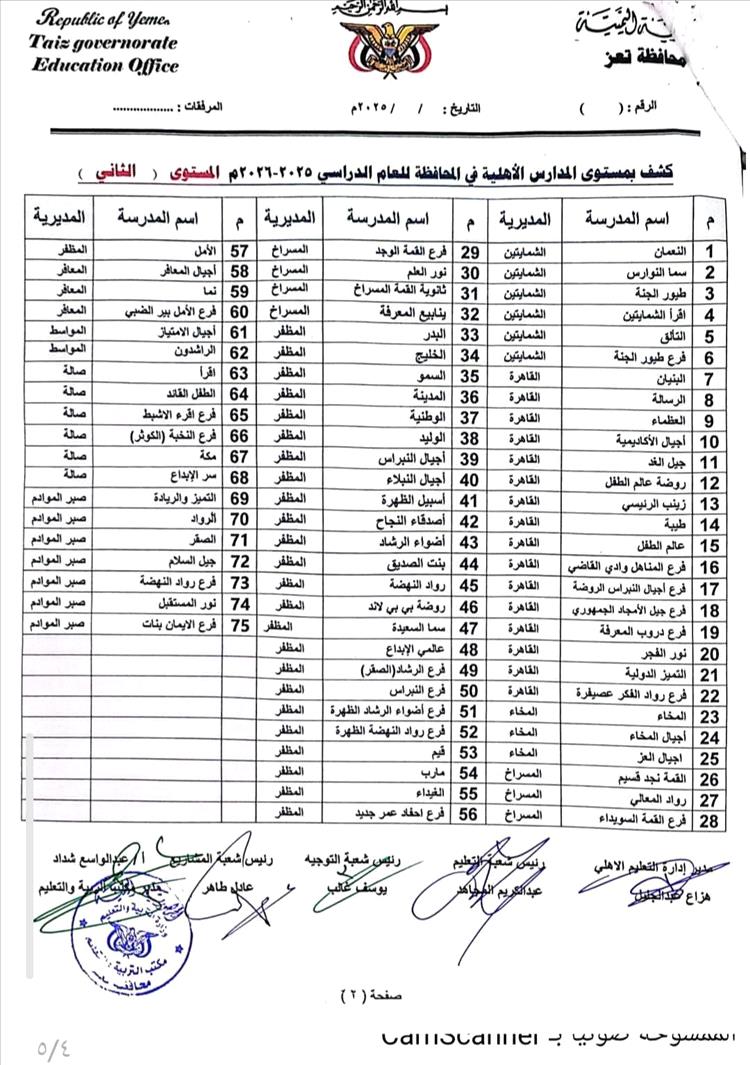 Republic of Yemen
Taiz governorate
Education Office
بسم الله الرحمن الرحيم
محافظة تعز
الرقم : ( )
التاريخ : / / ٢٠٢٥م
المرفقات : ..................
كشف بمستوى المدارس الأهلية في المحافظة للعام الدراسي ٢٠٢٥-٢٠٢٦م المستوى ( الثاني )
م اسم المدرسة المديرية م اسم المدرسة المديرية م اسم المدرسة المديرية
1 النعمان الشمايتين 29 فرع القمة الوجد المسراخ 57 الأمل المظفر
2 سما النوارس الشمايتين 30 نور العلم المسراخ 58 أجيال المعافر المعافر
3 طيور الجنة الشمايتين 31 ثانوية القمة المسراخ المسراخ 59 نما المعافر
4 اقرأ الشمايتين الشمايتين 32 ينابيع المعرفة المسراخ 60 فرع الأمل بير الضبي المعافر
5 التألق الشمايتين 33 البدر المظفر 61 أجيال الامتياز المواسط
6 فرع طيور الجنة الشمايتين 34 الخليج المظفر 62 الراشدون المواسط
7 البنيان القاهرة 35 السمو المظفر 63 اقرأ صالة
8 الرسالة القاهرة 36 المدينة المظفر 64 الطفل القائد صالة
9 العظماء القاهرة 37 الوطنية المظفر 65 فرع اقرء الاشبط صالة
10 أجيال الأكاديمية القاهرة 38 الوليد المظفر 66 فرع النخبة (الكوثر) صالة
11 جيل الغد القاهرة 39 أجيال النبراس المظفر 67 مكة صالة
12 روضة عالم الطفل القاهرة 40 أجيال النبلاء المظفر 68 سر الإبداع صالة
13 زينب الرئيسي القاهرة 41 أسبيل الظهرة المظفر 69 التميز والريادة صبر الموادم
14 طيبة القاهرة 42 أصدقاء النجاح المظفر 70 الرواد صبر الموادم
15 عالم الطفل القاهرة 43 أضواء الرشاد المظفر 71 الصقر صبر الموادم
16 فرع المناهل وادي القاضي القاهرة 44 بنت الصديق المظفر 72 جيل السلام صبر الموادم
17 فرع أجيال النبراس الروضة القاهرة 45 رواد النهضة المظفر 73 فرع رواد النهضة صبر الموادم
18 فرع جيل الأمجاد الجمهوري القاهرة 46 روضة بي بي لاند المظفر 74 نور المستقبل صبر الموادم
19 فرع دروب المعرفة القاهرة 47 سما السعيدة المظفر 75 فرع الايمان بنات صبر الموادم
20 نور الفجر القاهرة 48 عالمي الإبداع المظفر
21 التميز الدولية القاهرة 49 فرع الرشاد(الصقر) المظفر
22 فرع رواد الفكر عصيفرة القاهرة 50 فرع النبراس المظفر
23 المخاء المخاء 51 فرع أضواء الرشاد الظهرة المظفر
24 أجيال المخاء المخاء 52 فرع رواد النهضة الظهرة المظفر
25 اجيال العز المخاء 53 قيم المظفر
26 القمة نجد قسيم المسراخ 54 مارب المظفر
27 رواد المعالي المسراخ 55 الغيداء المظفر
28 فرع القمة السويداء المسراخ 56 فرع احفاد عمر جديد المظفر
مدير إدارة التعليم الاهلي رئيس شعبة التعليم رئيس شعبة التوجيه رئيس شعبة المشاريع أ/ عبدالواسع شداد
هزاع عبدالجليل عبدالكريم المجاهد يوسف غالب عادل طاهر مدير مكتب التربية والتعليم
وزارة التربية والتعليم
مكتب التربية والتعليم
صفحة (٢)
الممسوحة ضوئيا بـ CamScanner
٥/٤